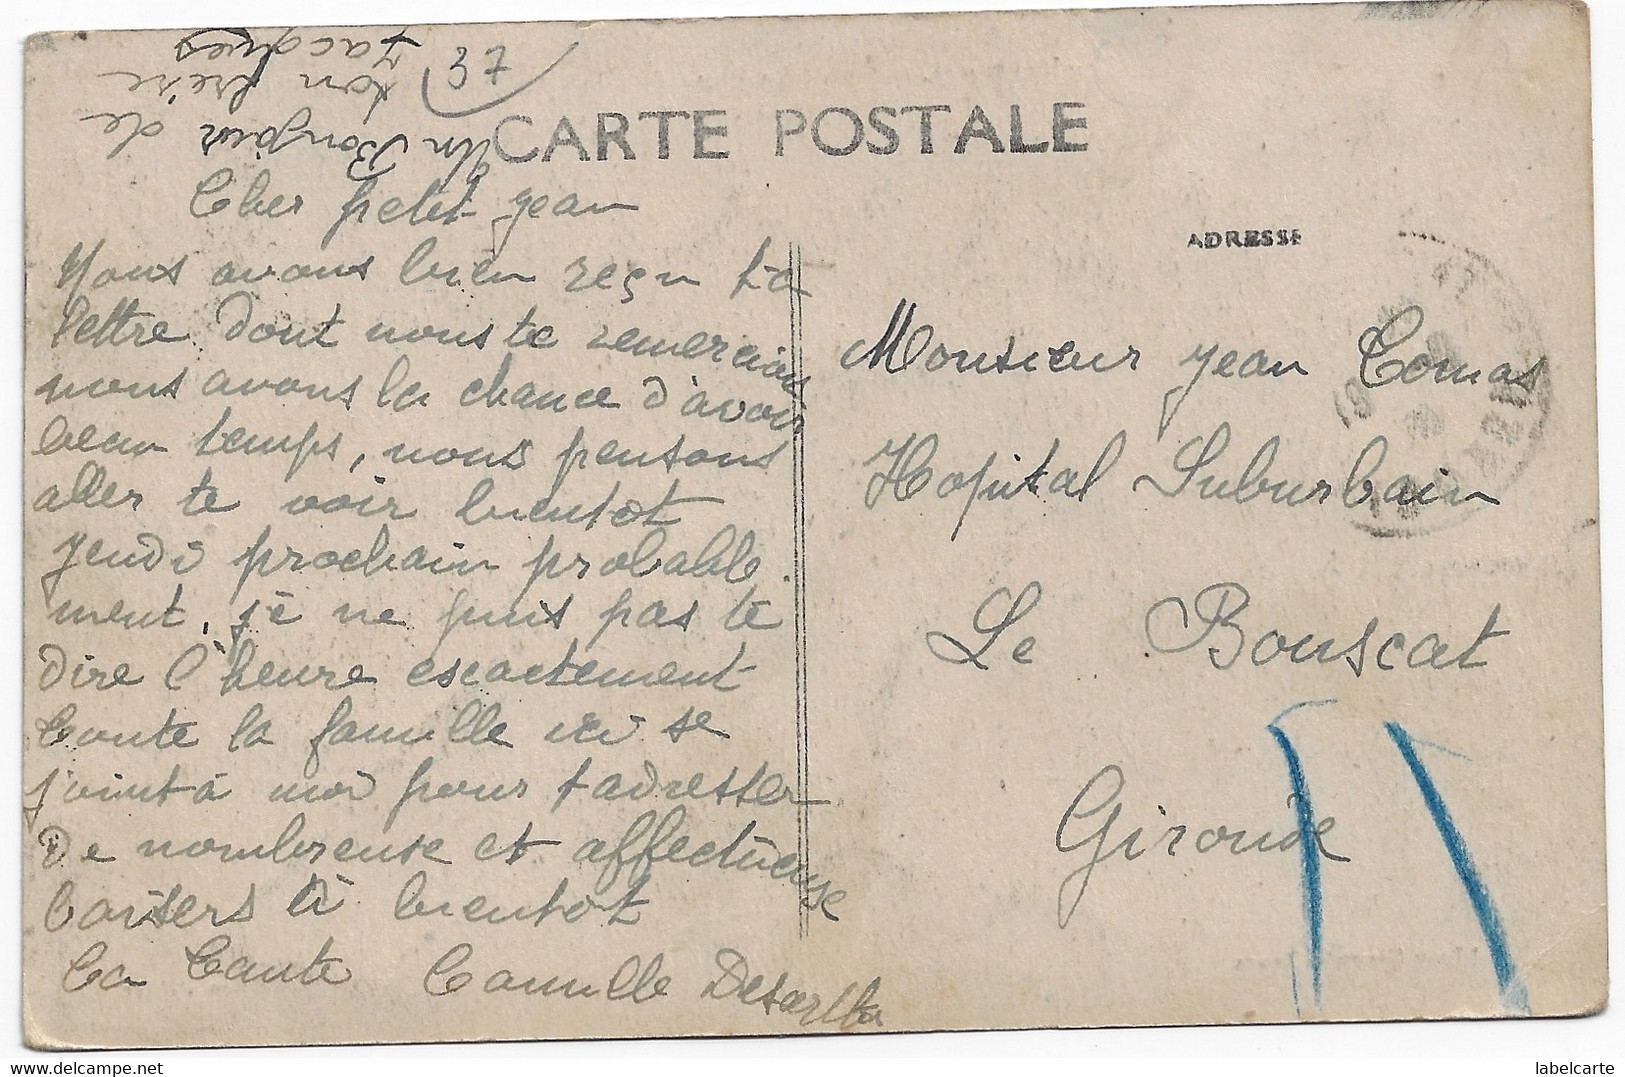 37
Un Bonjour de
ton frère
Jacques
CARTE POSTALE
Cher petit Jean
Nous avons bien reçu ta
lettre dont nous te remercions
nous avons la chance d'avoir
beau temps, nous pensons
aller te voir bientot
jeudi prochain probable.
ment, je ne puis pas te
dire l'heure escactement
toute la famille ici se
joint à moi pour t adresser
De nombreuse et affectueuse
baisers à bientot
ta tante Camille
ADRESSE
Monsieur Jean Comas
Hopital Suburbain
Le Bouscat
Gironde
labelcarte